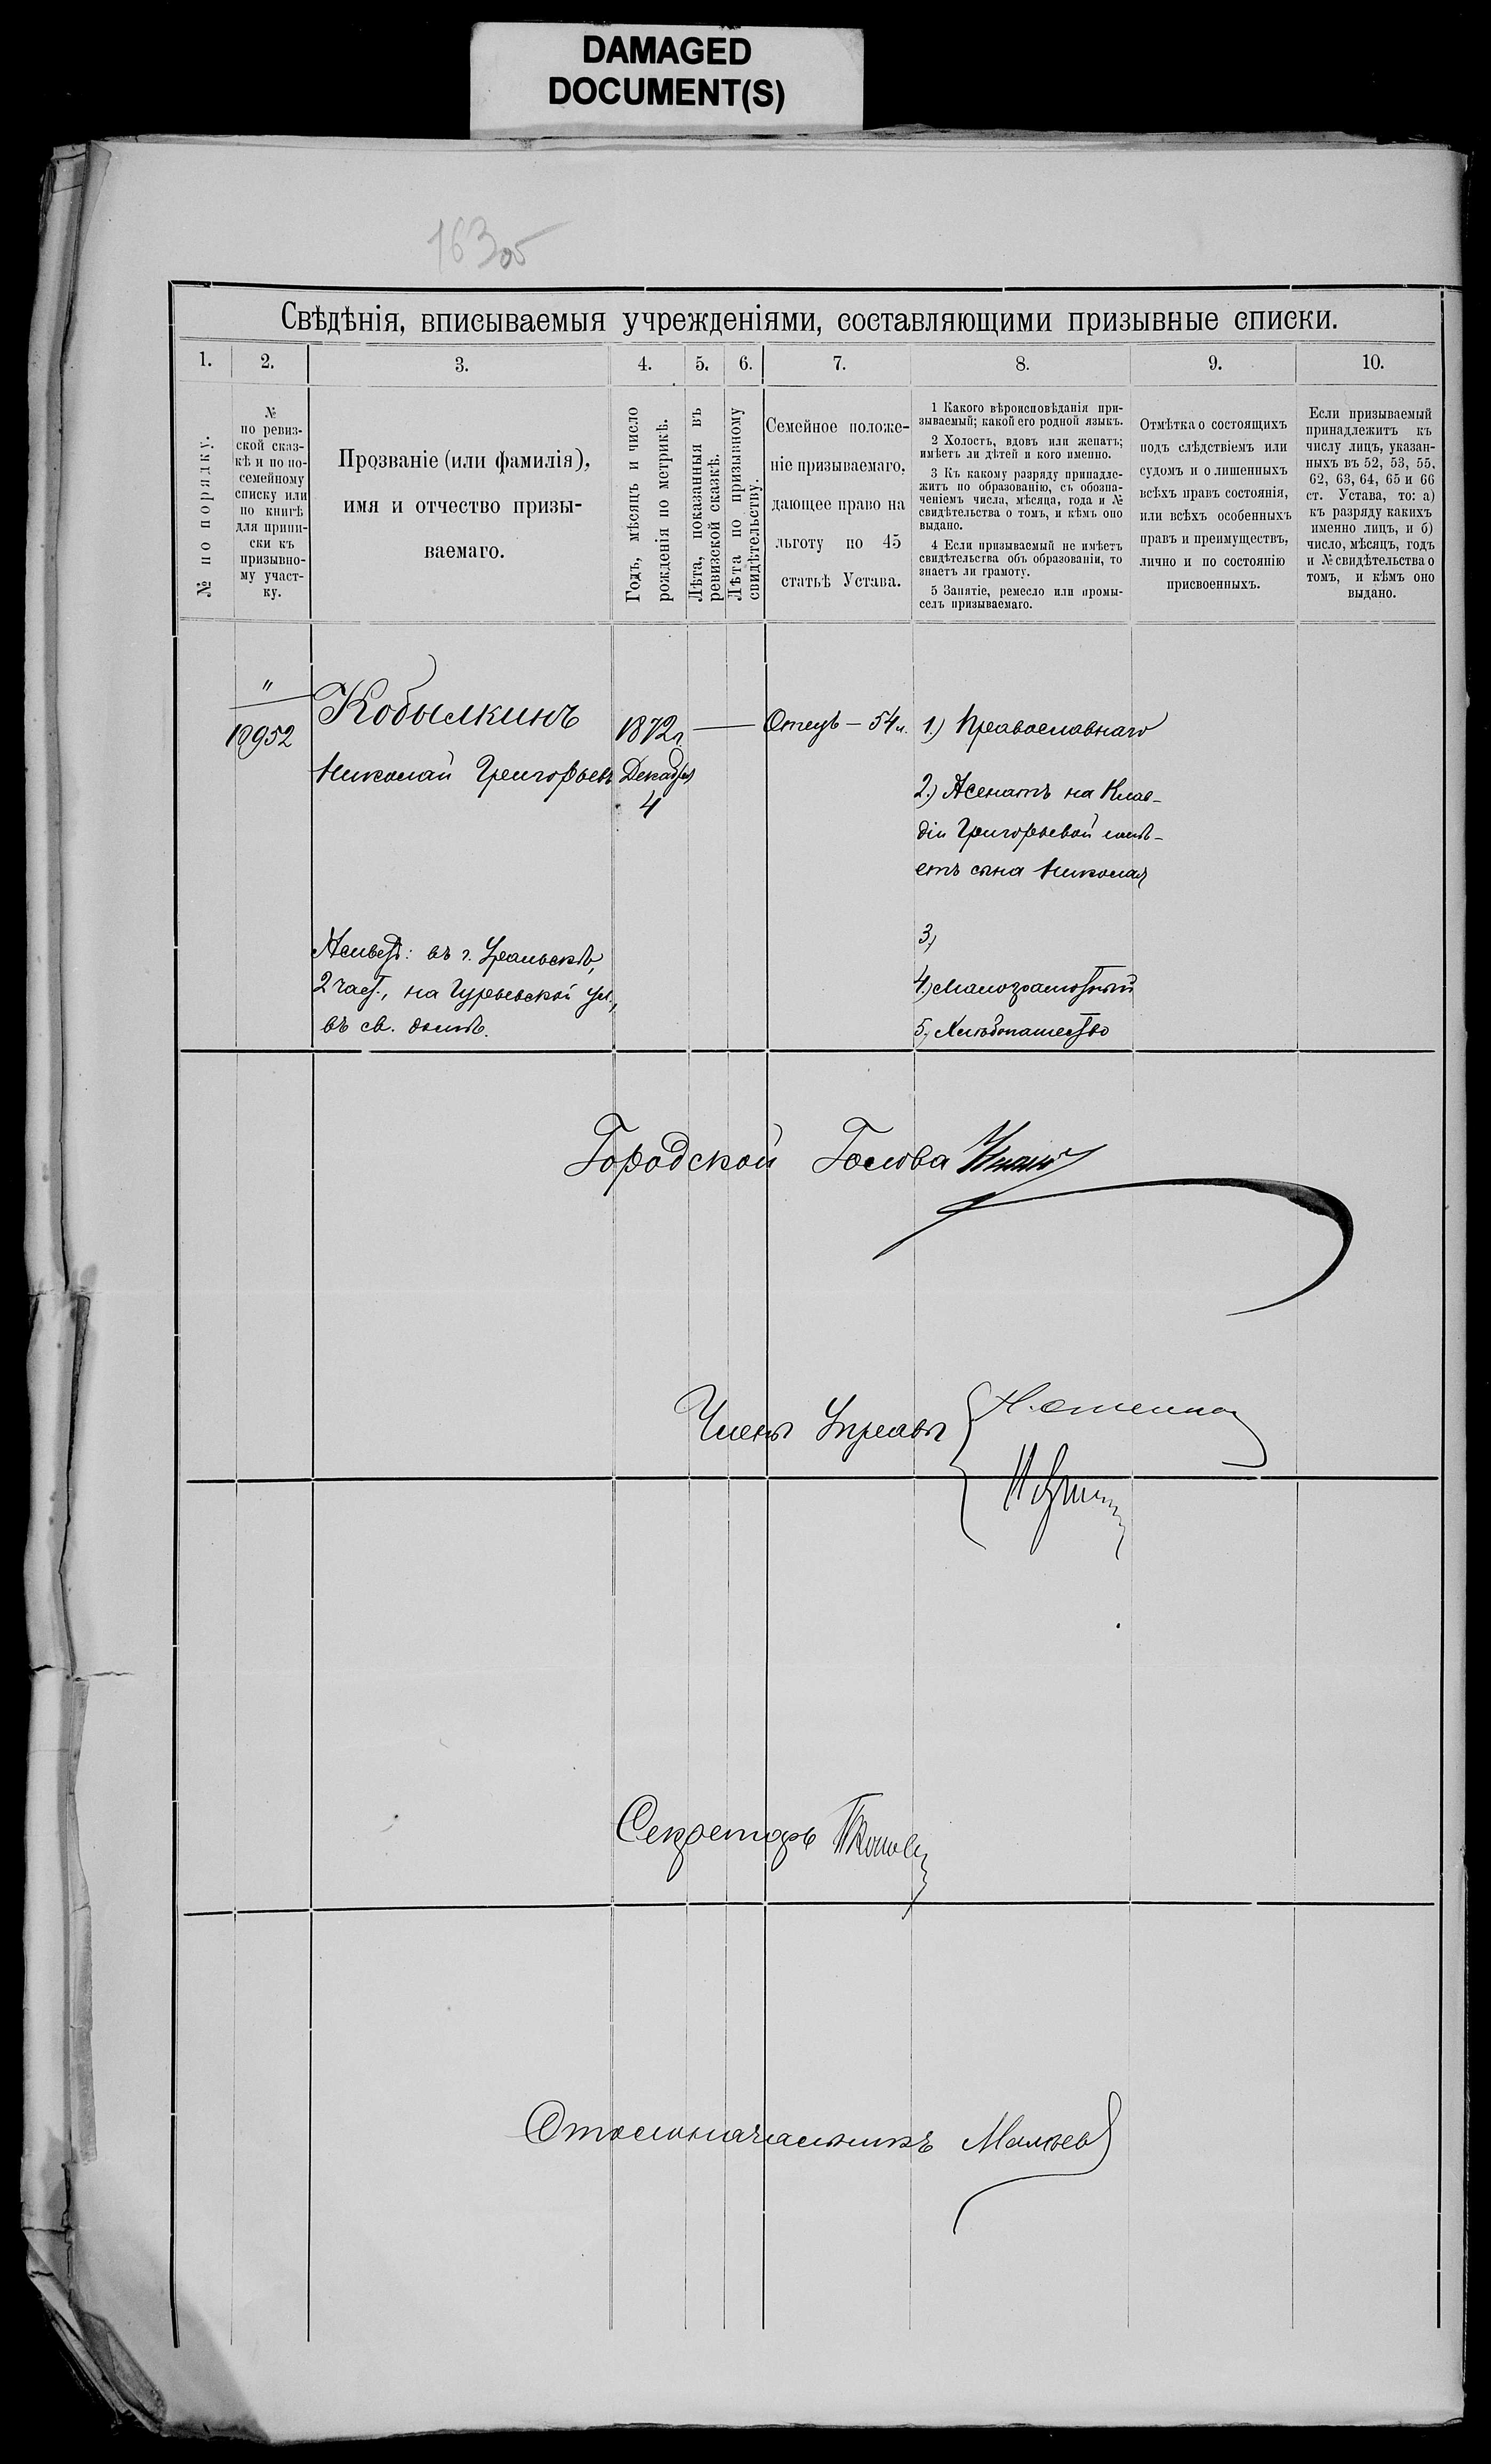 DAMAGED
DOCUMENT(S)
163об
Свѣдѣнія, вписываемыя учрежденіями, составляющими призывные списки.
1.
2.
3.
4.
5.
6.
7.
8.
9.
10.
№ по порядку.
№
по ревиз-
ской сказ-
кѣ и по по-
семейному
списку или
по книгѣ
для припи-
ски къ
призывно-
му участ-
ку.
Прозваніе (или фамилія),
имя и отчество призы-
ваемаго.
Годъ, мѣсяцъ и число
рожденія по метрикѣ.
Лѣта, показанныя въ
ревизской сказкѣ.
Лѣта по призывному
свидѣтельству.
Семейное положе-
ніе призываемаго,
дающее право на
льготу по 45
статьѣ Устава.
1 Какого вѣроисповѣданія при-
зываемый; какой его родной языкъ.
2 Холостъ, вдовъ или женатъ;
имѣетъ ли дѣтей и кого именно.
3 Къ какому разряду принадле-
житъ по образованію, съ обозна-
ченіемъ числа, мѣсяца, года и №
свидѣтельства о томъ, и кѣмъ оно
выдано.
4 Если призываемый не имѣетъ
свидѣтельства объ образованіи, то
знаетъ ли грамоту.
5 Занятіе, ремесло или промы-
селъ призываемаго.
Отмѣтка о состоящихъ
подъ слѣдствіемъ или
судомъ и о лишенныхъ
всѣхъ правъ состоянія,
или всѣхъ особенныхъ
правъ и преимуществъ,
лично и по состоянію
присвоенныхъ.
Если призываемый
принадлежитъ къ
числу лицъ, указан-
ныхъ въ 52, 53, 55,
62, 63, 64, 65 и 66
ст. Устава, то: а)
къ разряду какихъ
именно лицъ, и б)
число, мѣсяцъ, годъ
и № свидѣтельства о
томъ, и кѣмъ оно
выдано.
"
12952
Кобылкинъ
Николай Григорьевъ
1872 г.
Декабря
4
Отецъ — 54 л.
1.) Православнаго
2.) Женатъ на Клав-
діи Григорьевой имѣ-
етъ сына Николая
3.)
4.) Малограмотный
5.) Хлѣбопашество
Жительст: въ г. Уральскѣ,
2 част., на Гурьевской ул.,
въ св. домѣ.
Городской Голова
Члены Управы
Секретарь
Столоначальникъ